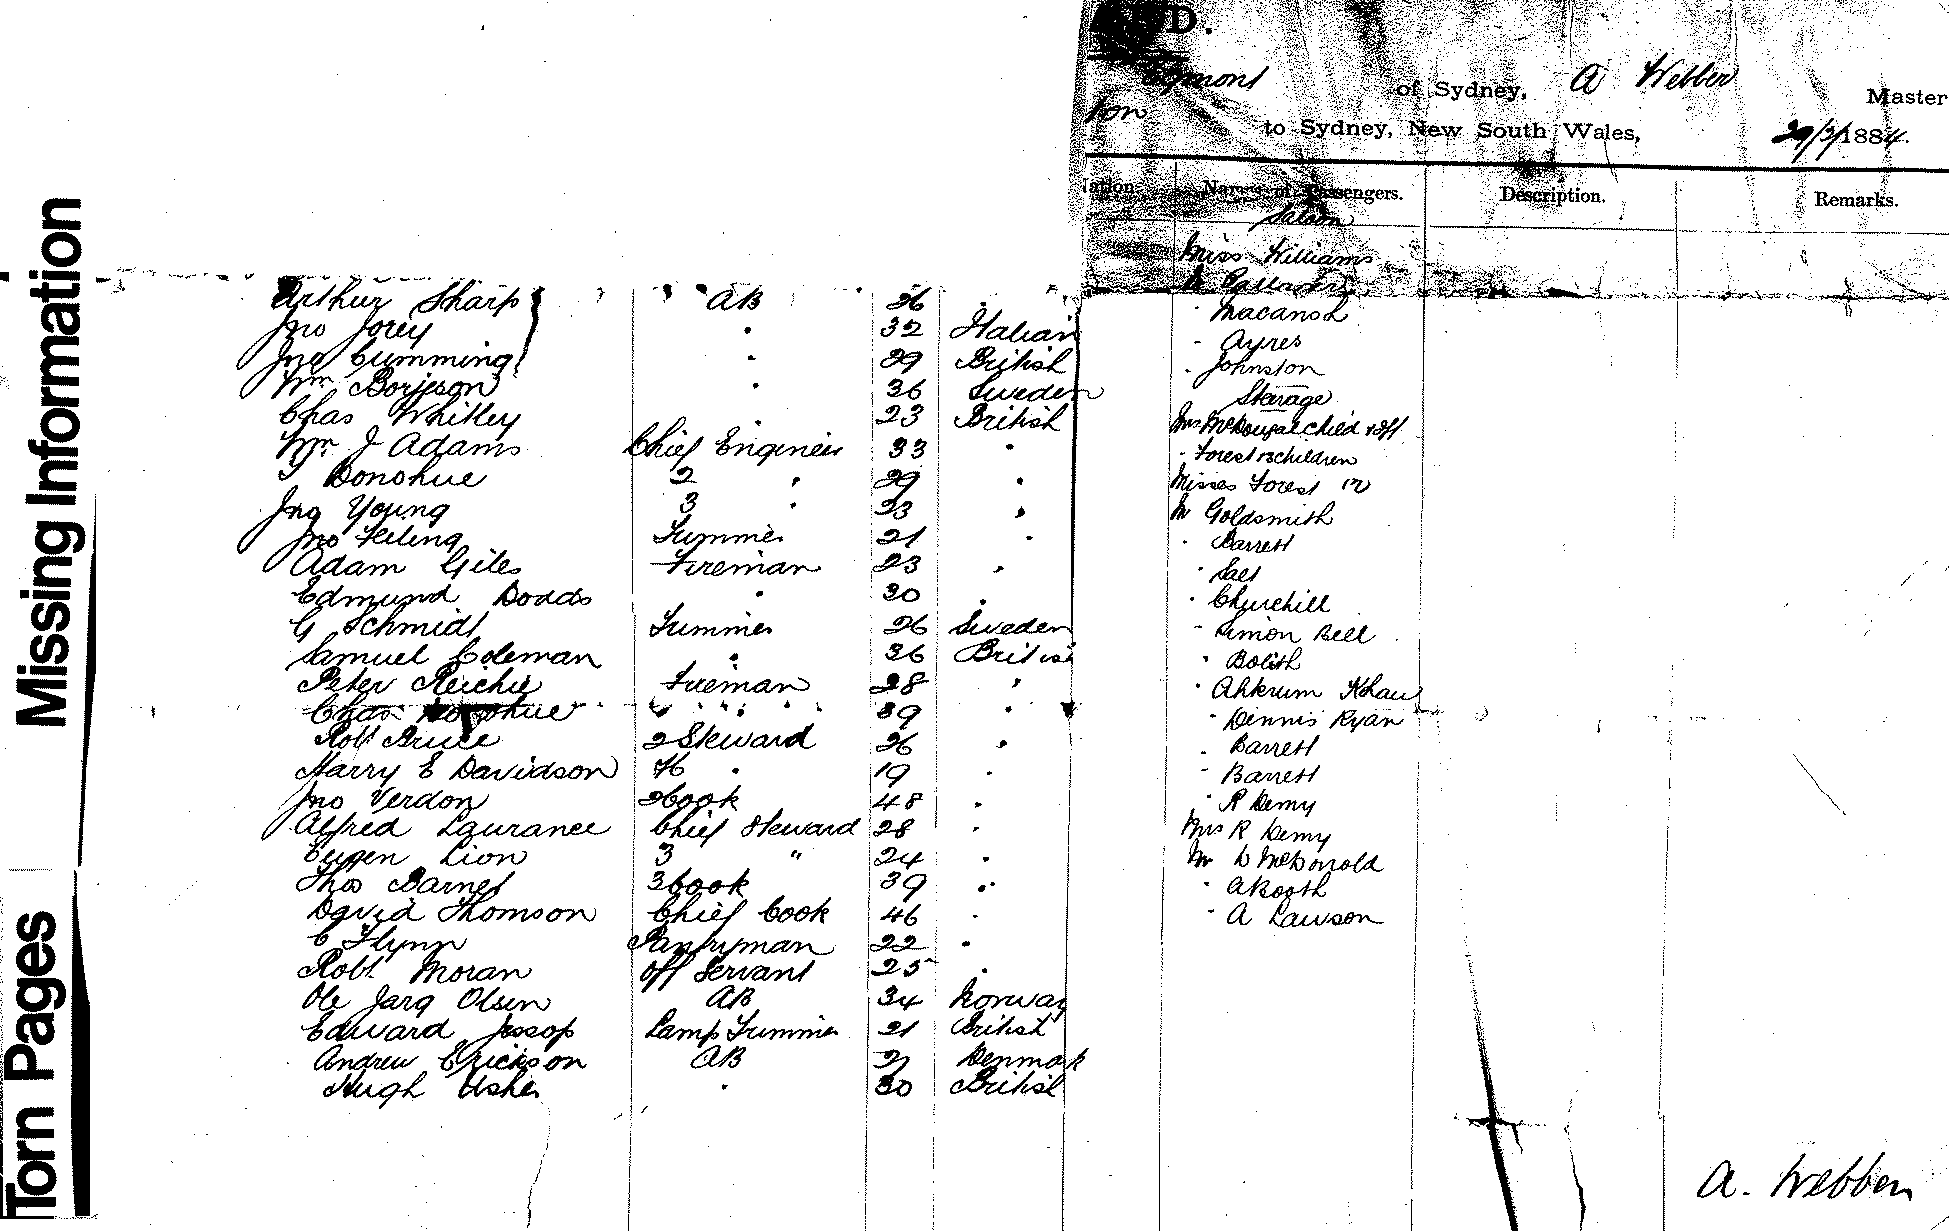 Missing Information
Torn Pages
D.
Egmont of Sydney, A Webber Master
ton to Sydney, New South Wales, 29/2/1884.
Nation Names of Passengers. Description. Remarks.
Saloon
Miss Williams
Arthur Sharp AB 26
Macansh
Jno Jorey " 32 Italian
Ayres
Jno Cumming " 29 British
Johnston
Wm Borjeson " 36 Sweden
Steerage
Chas Whitley " 23 British
Mrs McDougal child
Wm J Adams Chief Engineer 33 "
" Forest children
Donohue 2 " 29 "
Misses Forest
Jno Young 3 " 23 "
Mr Goldsmith
Jno Feling Trimmer 21 "
" Barrett
Adam Giles Fireman 23 "
Edmund Dodds " 30 "
" Churchill
G Schmidt Trimmer 26 Sweden
" Simon Bell
Samuel Coleman " 36 British
" Bolith
Peter Reichie Fireman 28 "
" Ahkrum Khan
Chas Donohue " " 39 "
" Dennis Ryan
Robt Bruce 2 Steward 26 "
" Barrett
Harry E Davidson 4 " 19 "
" Barrett
Jno Verdon 2 Cook 48 "
" R Demy
Alfred Laurance Chief Steward 28 "
Mrs R Demy
Eugen Lion 3 " 24 "
Mr D McDonald
Thos Barnet 3 Cook 39 "
" A Booth
David Thomson Chief Cook 46 "
" A Lawson
C Flynn Pantryman 22 "
Robt Moran Off Servant 25 "
Ole Jarg Olsen AB 34 Norway
Edward Jessop Lamp Trimmer 21 British
Andrew Erickson AB 27 Denmark
Hugh Usher " 30 British
A. Webber